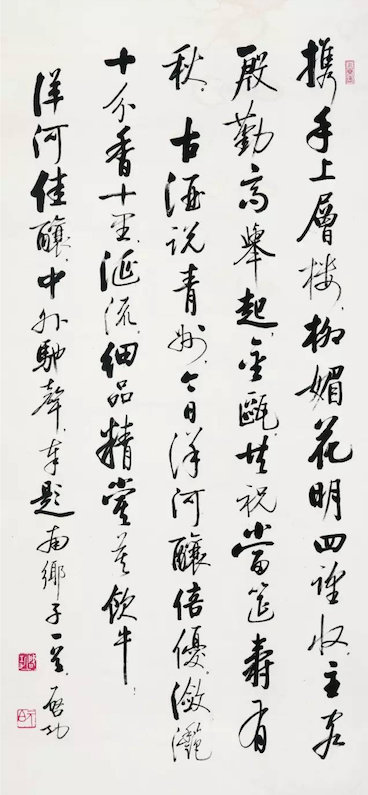 携手上層楼柳媚花明四望收主客
殷勤高舉起金甌共祝當筵壽有
秋古酒説青州今日洋河釀倍優瀲灧
十分香十里滙流細品精嘗莫飲牛
洋河佳釀中外馳聲奉題南鄉子一首啓功